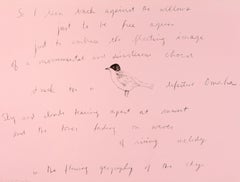 So I lean back against the willows
just to be free again
just to embrace the fleeting image
of a monumental and mysterious chorus
and the
Sky and clouds tearing apart at sunset
and the tones fading on waves
of rising melody
in the flowing geography of the city